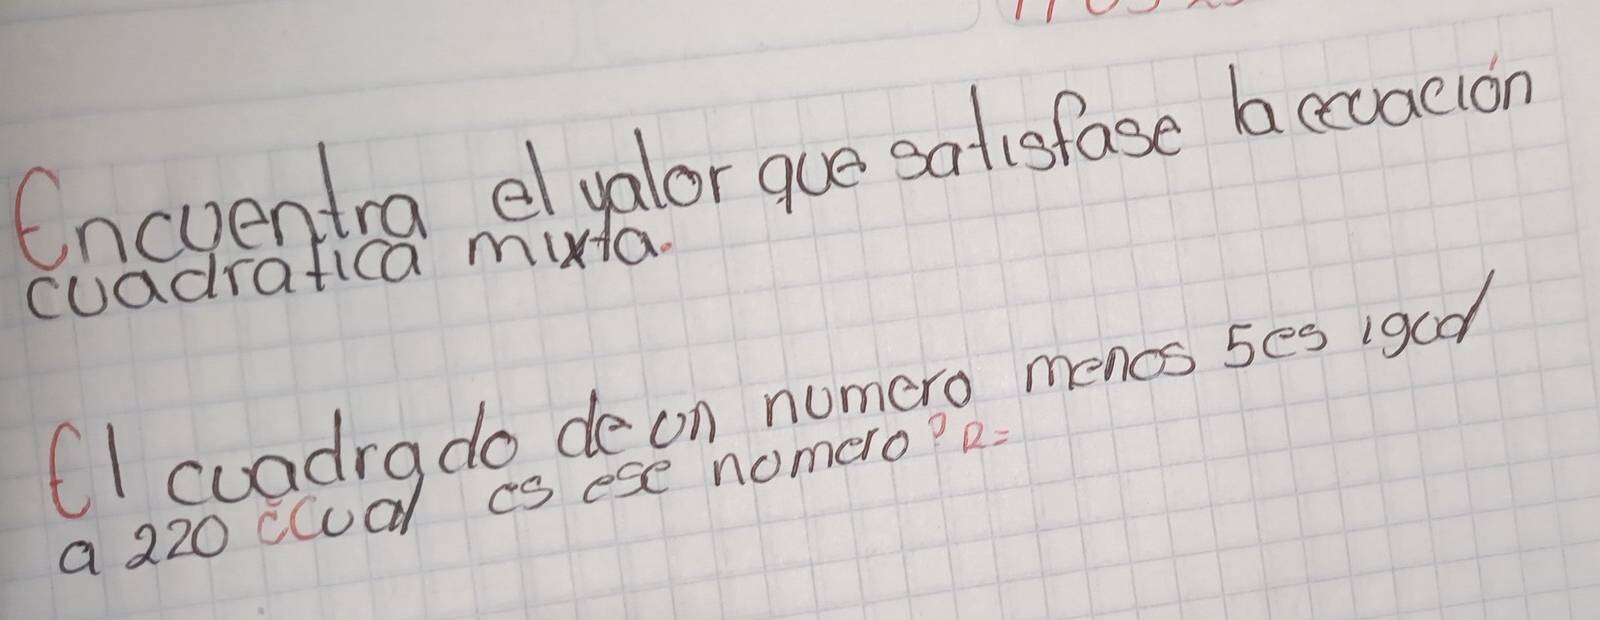 Encuentra el valor que satisfase la ecuación
cuadratica mixta.
El cuadrado de un numero menos 5 es igual
a 220 ¿Cual es ese numero? R=